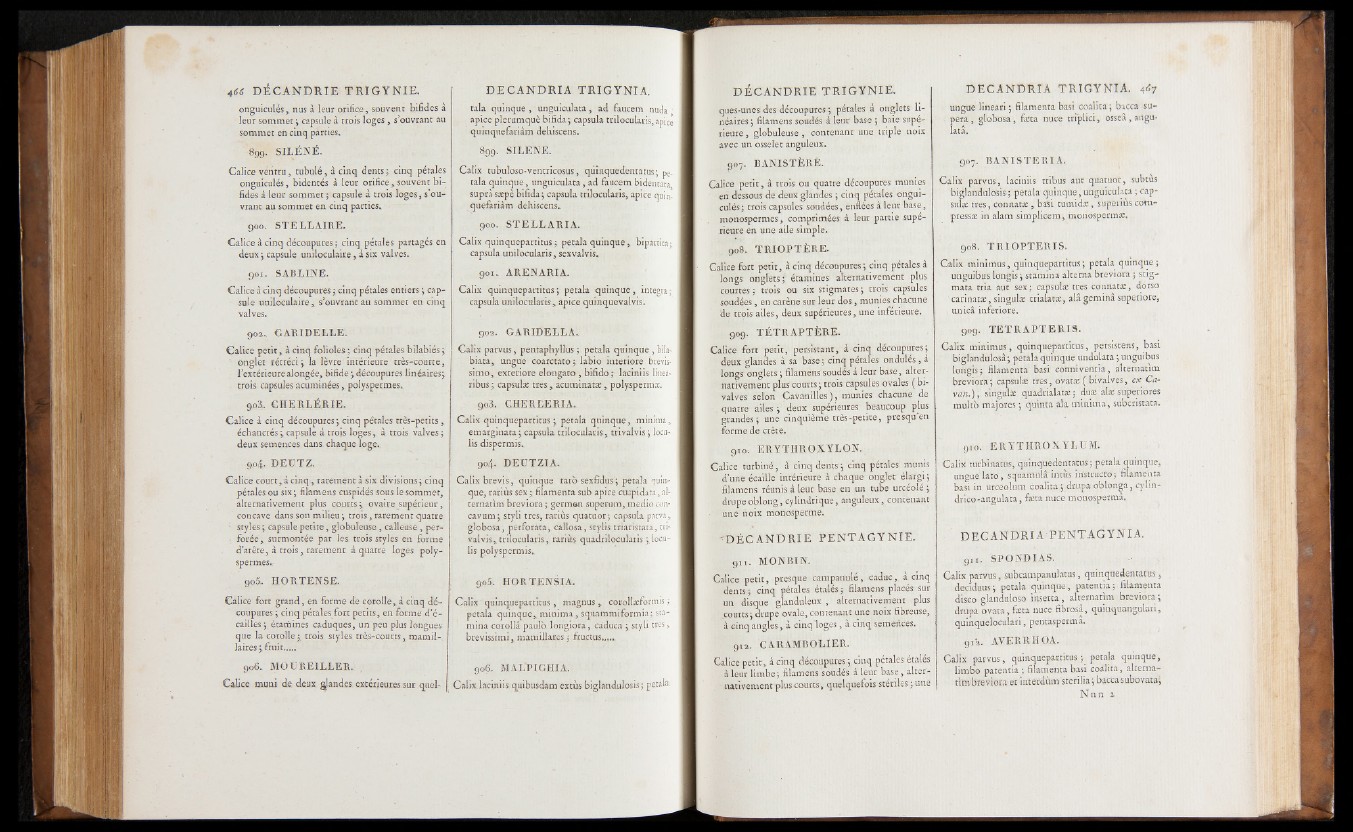 466 DÉCANDRIE TRIGYNIE.
onguiculés, nus à leur orifice, souvent bifides à
leur sommet; capsule à trois loges, s'ouvrant au
sommet en cinq parties.
899. SILÉNÉ.
Calice ventru, tubulé, à cinq dents; cinq pétales
onguiculés, bidentés à leur orifice, souvent bi-
fides à leur sommet; capsule à trois loges, s'ou-
vrant au sommet en cinq parties.
900. STELLAIRE.
Calice à cinq découpures; cinq pétales partagés en
deux; capsule uniloculaire, à six valves.
901. SABLINE.
Calice à cinq découpures; cinq pétales entiers; cap-
sule uniloculaire, s'ouvrant au sommet en cinq
valves.
902. GARIDELLE.
Calice petit, à cinq folioles; cinq pétales bilabiés;
onglet rétréci; la lèvre intérieure très-courte,
l'extérieure alongée, bifide; découpures linéaires;
trois capsules acuminées, polyspermes.
903. CHERLÉRIE.
Calice à cinq découpures; cinq pétales très-petits,
échancrés; capsule à trois loges, à trois valves;
deux semences dans chaque loge.
904. DEUTZ.
Calice court, à cinq, rarement à six divisions; cinq
pétales ou six; filamens cuspidés sous le sommet,
alternativement plus courts; ovaire supérieur,
concave dans son milieu; trois, rarement quatre
styles; capsule petite, globuleuse, calleuse, per-
forée, surmontée par les trois styles en forme
d'arête, à trois, rarement à quatre loges poly-
spermes.
905. HORTENSE.
Calice fort grand, en forme de corolle, à cinq dé-
coupures; cinq pétales fort petits, en forme d'é-
cailles; étamines caduques, un peu plus longues
que la corolle; trois styles très-courts, mamil-
laires; fruit.....
906. MOUREILLER.
Calice muni de deux glandes extérieures sur quel-
DECANDRIA TRIGYNIA.
tala quinque, unguiculata, ad faucem nuda,
apice plerumquè bifida; capsula trilocularis, apice
quinquefariàm dehiscens.
899. SILENE.
Calix tubuloso-ventricosus, quinquedentatus; pe-
tala quinque, unguiculata, ad faucem bidentata,
suprà sæpè bifida; capsula trilocularis, apice quin-
quefariàm dehiscens.
900. STELLARIA.
Calix quinquepartitus; petala quinque, bipartita;
capsula unilocularis, sexvalvis.
901. ARENARIA.
Calix quinquepartitus; petala quinque, integra;
capsula unilocularis, apice quinquevalvis.
902. GARIDELLA.
Calix parvus, pentaphyllus; petala quinque, bila-
biata, ungue coarctato; labio interiore brevis-
simo, exteriore elongato, bifido; laciniis linea-
ribus; capsulæ tres, acuminatæ, polyspermæ.
903. CHERLERIA.
Calix quinquepartitus; petala quinque, minima,
emarginata; capsula trilocularis, trivalvis; locu-
lis dispermis.
904. DEUTZIA.
Calix brevis, quinque rarò sexfidus; petala quin-
que, rariùs sex; filamenta sub apice cuspidata, al-
ternatìm breviora; germen superum, medio con-
cavum; styli tres, rariùs quatuor; capsula parva,
globosa, perforata, callosa, stylis triaristata, tri-
valvis, trilocularis, rariùs quadrilocularis; locu-
lis polyspermis.
905. HORTENSIA.
Calix quinquepartitus, magnus, corollæformis;
petala quinque, minima, squammiformia; sta-
mina corollâ paulò longiora, caduca; styli tres,
brevissimi, mamillares; fructus.....
906. MALPIGHIA.
Calix laciniis quibusdam extùs biglandulosis; petala
DÉCANDRIE TRIGYNIE.
ques-unes des découpures; pétales à onglets li-
néaires; filamens soudés à leur base; baie supé-
rieure, globuleuse, contenant une triple noix
avec un osselet anguleux.
907. BANISTÈRE.
Calice petit, à trois ou quatre découpures munies
en dessous de deux glandes; cinq pétales ongui-
culés; trois capsules soudées, enflées à leur base,
monospermes, comprimées à leur partie supé-
rieure en une aile simple.
908. TRIOPTÈRE.
Calice fort petit, à cinq découpures; cinq pétales à
longs onglets; étamines alternativement plus
courtes; trois ou six stigmates; trois capsules
soudées, en carène sur leur dos, munies chacune
de trois ailes, deux supérieures, une inférieure.
909. TÉTRAPTÈRE.
Calice fort petit, persistant, à cinq découpures;
deux glandes à sa base; cinq pétales ondulés, à
longs onglets; filamens soudés à leur base, alter-
nativement plus courts; trois capsules ovales (bi-
valves selon Cavanilles), munies chacune de
quatre ailes; deux supérieures beaucoup plus
grandes; une cinquième très-petite, presqu'en
forme de crête.
910. ERYTHROXYLON.
Calice turbiné, à cinq dents; cinq pétales munis
d'une écaille intérieure à chaque onglet élargi;
filamens réunis à leur base en un tube urcéolé;
drupe oblong, cylindrique, anguleux, contenant
une noix monosperme.
DÉCANDRIE PENTAGYNIE.
911. MONBIN.
Calice petit, presque campanulé, caduc, à cinq
dents; cinq pétales étalés; filamens placés sur
un disque glanduleux, alternativement plus
courts; drupe ovale, contenant une noix fibreuse,
à cinq angles, à cinq loges, à cinq semences.
912. CARAMBOLIER.
Calice petit, à cinq découpures; cinq pétales étalés
à leur limbe; filamens soudés à leur base, alter-
nativement plus courts, quelquefois stériles; une
DECANDRIA TRIGYNIA. 467
ungue lineari; filamenta basi coalita; bacca su-
pera, globosa, fœta nuce triplici, osseâ, angu-
latâ.
907. BANISTERIA.
Calix parvus, laciniis tribus aut quatuor, subtùs
biglandulosis; petala quinque, unguiculata; cap-
sulæ tres, connatæ, basi tumidæ, superiùs com-
pressæ in alam simplicem, monospermæ.
908. TRIOPTERIS.
Calix minimus, quinquepartitus; petala quinque;
unguibus longis, stamina alterna breviora; stig-
mata tria aut sex; capsulæ tres connatæ, dorso
carinatæ, singulæ trialatæ, alâ geminâ superiore,
unicâ inferiore.
909. TETRAPTERIS.
Calix minimus, quinquepartitus, persistens, basi
biglandulosâ; petala quinque undulata; unguibus
longis; filamenta basi conniventia, alternatìm
breviora; capsulæ tres, ovatæ (bivalves, ex Ca-
van.), singulæ quadrialatæ; duæ alæ superiores
multò majores; quinta ala minima, subcristata.
910. ERYTHROXYLUM.
Calix turbinatus, quinquedentatus; petala quinque,
ungue lato, squamulâ intùs instructo; filamenta
basi in urceolum coalita; drupa oblonga, cylin-
drico-angulata, fœta nuce monospermâ.
DECANDRIA PENTAGYNIA.
911. SPONDIAS.
Calix parvus, subcampanulatus, quinquedentatus,
deciduus; petala quinque, patentia; filamenta
disco glanduloso inserta, alternatìm breviora;
drupa ovata, fœta nuce fibrosâ, quinquangulari,
quinqueloculari, pentaspermâ.
912. AVERRHOA.
Calix parvus, quinquepartitus; petala quinque,
limbo patentia; filamenta basi coalita, alterna-
tìm breviora et interdùm sterilia; bacca subovata,
Nnn 2